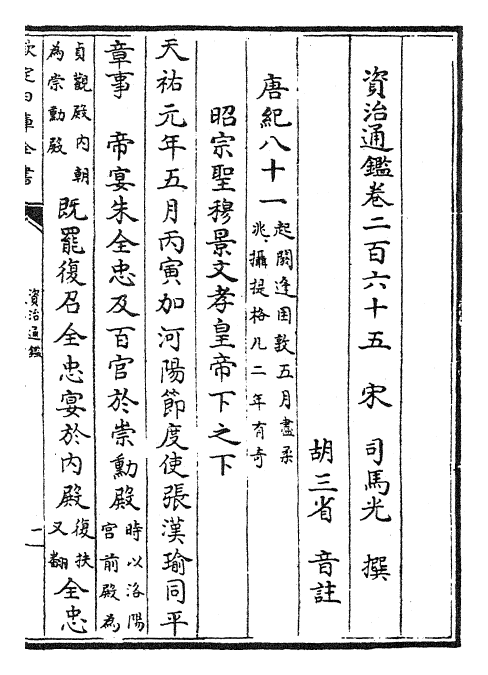 資治通鑑卷二百六十五　宋　司馬光　撰
胡三省　音註
唐紀八十一 起閼逢困敦五月盡柔
兆攝提格凡二年有奇
昭宗聖穆景文孝皇帝下之下
天祐元年五月丙寅加河陽節度使張漢瑜同平
章事　帝宴朱全忠及百官於崇勳殿 時以洛陽
宮前殿為
貞觀殿内朝
為崇勳殿 既罷復召全忠宴於内殿 復扶
又翻 全忠
欽定四庫全書
資治通鑑
一